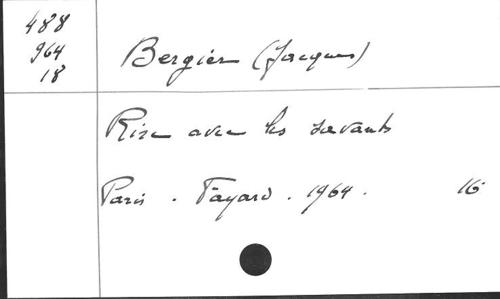 488
964
18
Bergier (Jacques)
Rire avec les savants
Paris . Fayard . 1964 . 16